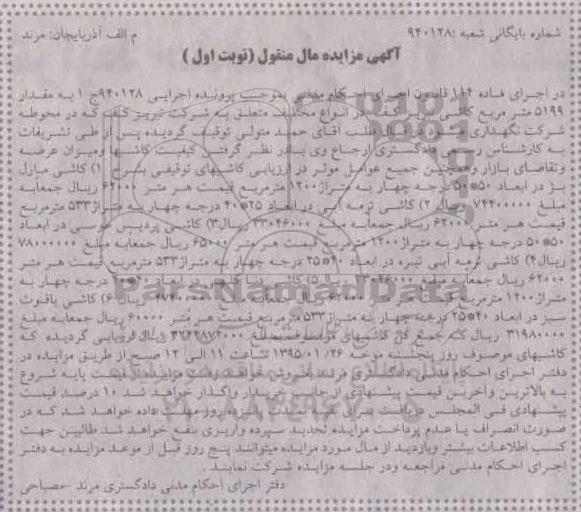 شماره بایگانی شعبه :۹۴۰۱۲۸ م الف آذربایجان: مرند
آگهی مزایده مال منقول (نوبت اول )
در اجرای ماده ۱۱۴ قانون اجرای احکام مدنی بموجب پرونده اجرایی ۹۴۰۱۲۸ج ۱ به مقدار
۵۱۹۹ متر مربع کاشی تبریز کف در انواع مختلف متعلق به شرکت تبریز کف که در محوطه
شرکت نگهداری طلب آقای حمید متولی توقیف گردیده پس از طی تشریفات
به کارشناس رسمی دادگستری ارجاع وی بادر نظر گرفتن کیفیت کاشیها ومیزان عرضه
وتقاضای بازار وهمچنین جمیع عوامل موثر در ارزیابی کاشیهای توقیفی بشرح ۱) کاشی مارل
بژ در ابعاد ۵۰*۵۰ درجه چهار به متراژ ۱۲۰۰ مترمربع قیمت هر متر ۶۲۰۰۰ ریال جمعابه
مبلغ ۷۴۴۰۰۰۰۰ ریال ۲) کاشی ترمه آبی در ابعاد ۲۵*۴۰ درجه چهار به متراژ ۵۳۳ مترمربع
قیمت هر متر ۶۲۰۰۰ ریال جمعابه مبلغ ۳۳۰۴۶۰۰۰ ریال ۳) کاشی پردیس طوسی در ابعاد
۵۰*۵۰ درجه چهار به متراژ ۱۲۰۰ مترمربع قیمت هر متر ۶۵۰۰۰ ریال جمعابه مبلغ ۷۸۰۰۰۰۰۰
ریال ۴) کاشی ترمه آبی تیره در ابعاد ۴۰*۲۵ درجه چهار به متراژ ۵۳۳ مترمربع قیمت هر متر
۶۲۰۰۰ ریال جمعابه مبلغ ۳۳۰۴۶۰۰۰ ریال ۵) کاشی درجه چهار به
متراژ ۱۲۰۰ مترمربع ۶۲۰۰۰ ریال ۶) کاشی یاقوت
سبز در ابعاد ۴۰*۲۵ درجه چهار به متراژ ۵۳۳ مترمربع قیمت هر متر ۶۰۰۰۰ ریال جمعابه مبلغ
۳۱۹۸۰۰۰۰ ریال که جمع کل کاشیهای مزایده بمبلغ ریال ارزیابی گردیده که
کاشیهای موصوف روز پنجشنبه مورخه ۱۳۹۵/۰۱/۲۶ ساعت ۱۱ الی ۱۲ صبح از طریق مزایده در
دفتر اجرای احکام مدنی دادگستری مرند بفروش خواهد رفت مزایده از قیمت پایه شروع
به بالاترین وآخرین قیمت پیشنهادی از جانب خریدار واگذار خواهد شد ۱۰ درصد قیمت
پیشنهادی فی المجلس دریافت روز مهلت داده خواهد شد که در
صورت انصراف یا عدم پرداخت مزایده تجدید سپرده واریزی بنفع خواهد شد طالبین جهت
کسب اطلاعات بیشتر وبازدید از مال مورد مزایده میتوانند پنج روز قبل از موعد مزایده به دفتر
اجرای احکام مدنی مراجعه ودر جلسه مزایده شرکت نمایند .
دفتر اجرای احکام مدنی دادگستری مرند -مصباحی
ParsNamadData